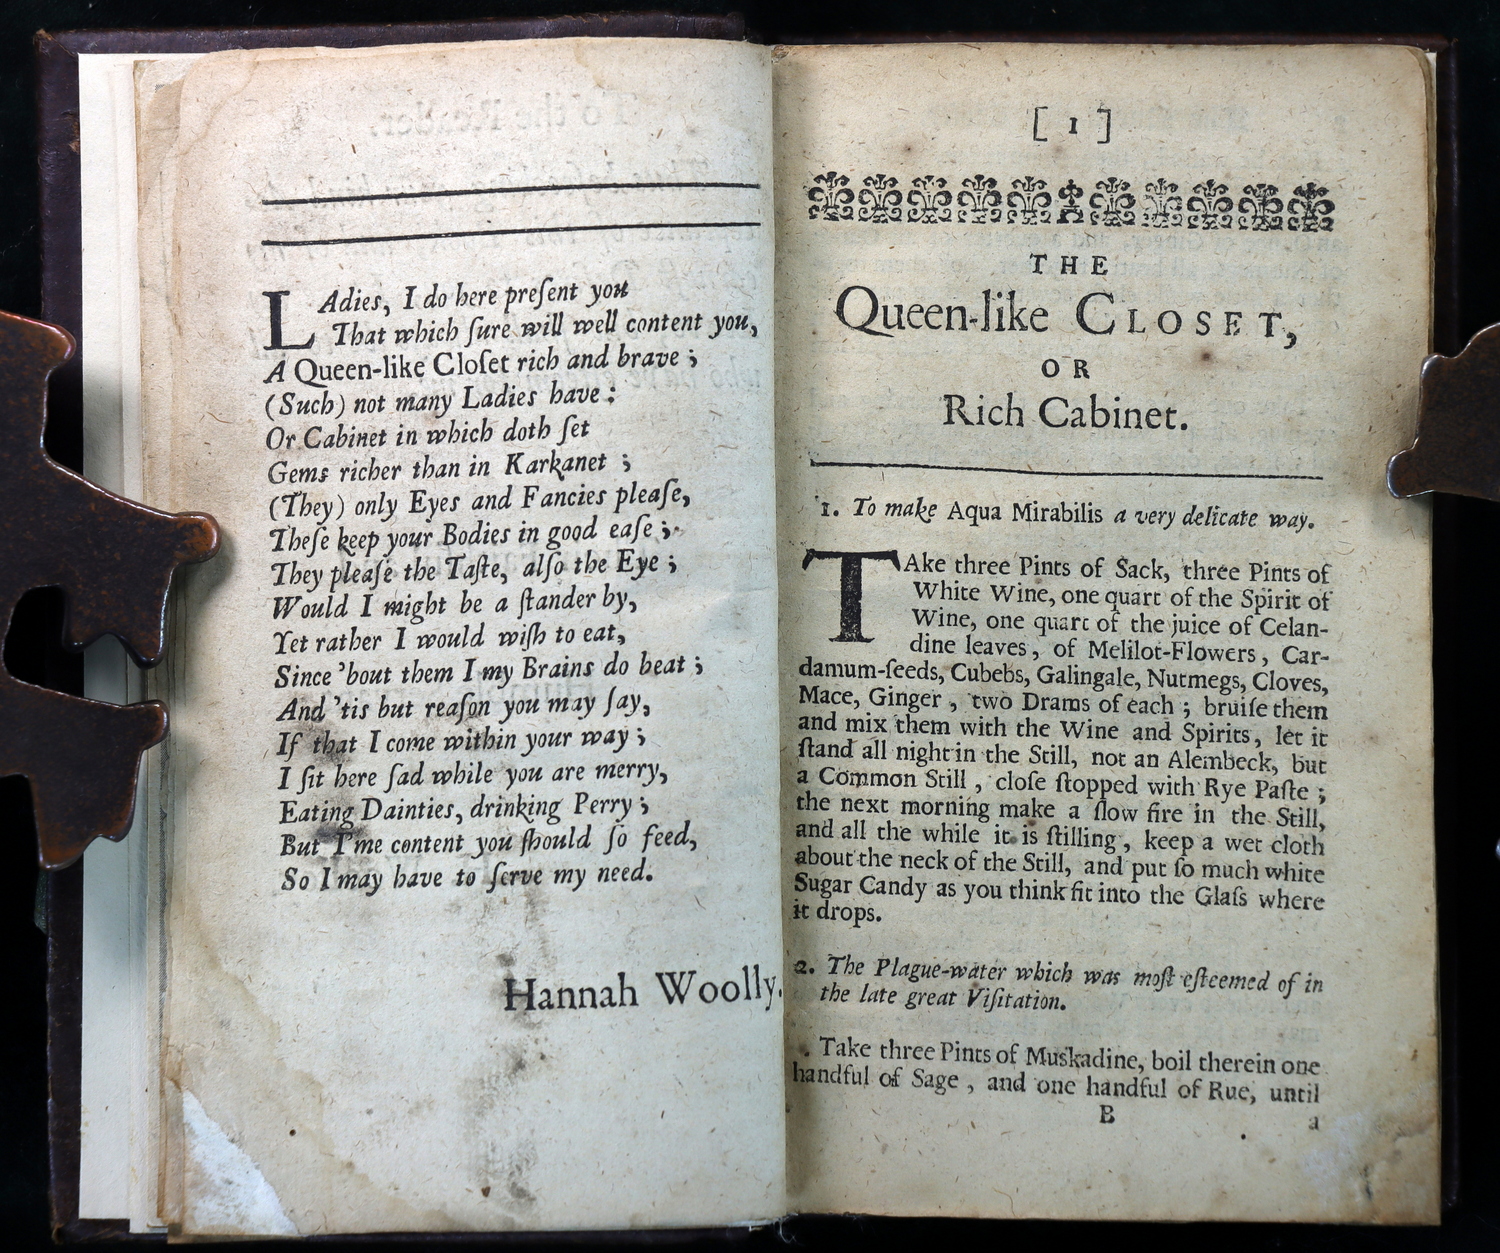 LAdies, I do here preſent you
That which ſure will well content you,
A Queen-like Cloſet rich and brave ;
(Such) not many Ladies have :
Or Cabinet in which doth ſet
Gems richer than in Karkanet ;
(They) only Eyes and Fancies pleaſe,
Theſe keep your Bodies in good eaſe ;
They pleaſe the Taſte, alſo the Eye ;
Would I might be a ſtander by,
Yet rather I would wiſh to eat,
Since 'bout them I my Brains do beat ;
And 'tis but reaſon you may ſay,
If that I come within your way ;
I ſit here ſad while you are merry,
Eating Dainties, drinking Perry ;
But I'me content you ſhould ſo feed,
So I may have to ſerve my need.
Hannah Woolly.
[ 1 ]
THE
Queen-like CLOSET,
OR
Rich Cabinet.
1. To make Aqua Mirabilis a very delicate way.
TAke three Pints of Sack, three Pints of
White Wine, one quart of the Spirit of
Wine, one quart of the juice of Celan-
dine leaves, of Melilot-Flowers, Car-
damum-ſeeds, Cubebs, Galingale, Nutmegs, Cloves,
Mace, Ginger, two Drams of each ; bruiſe them
and mix them with the Wine and Spirits, let it
ſtand all night in the Still, not an Alembeck, but
a Common Still, cloſe ſtopped with Rye Paſte ;
the next morning make a ſlow fire in the Still,
and all the while it is ſtilling, keep a wet cloth
about the neck of the Still, and put ſo much white
Sugar Candy as you think fit into the Glaſs where
it drops.
2. The Plague-water which was moſt eſteemed of in
the late great Viſitation.
Take three Pints of Muskadine, boil therein one
handful of Sage, and one handful of Rue, until
B a